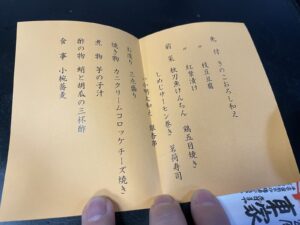 先付 きのこおろし和え
〃 枝豆豆腐
〃 紅葉漬け 鶏五目焼き
前菜 秋刀魚けんちん 茗荷寿司
しめじサーモン巻き
お造り 三点盛り
焼き物 カニクリームコロッケチーズ焼き
煮物 芋の子汁
酢の物 蛸と胡瓜の三杯酢
食事 小椀蕎麦
東家